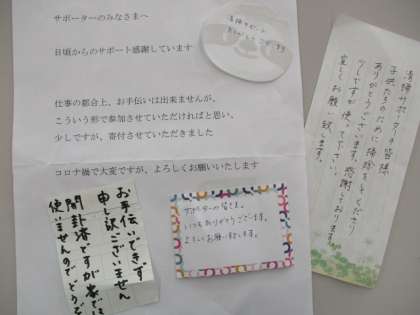 サポーターのみなさまへ
日頃からのサポート感謝しています
仕事の都合上、お手伝いは出来ませんが、
こういう形で参加させていただければと思い、
少しですが、寄付させていただきました
コロナ禍で大変ですが、よろしくお願いいたします
清掃サポーター
ありがとうございます
清掃サポーターの皆様
子供たちのために掃除をしてくださり
ありがとうございます。感謝しております。
少しですが使って下さい。
宜しくお願い致します。
お手伝いできず
申し訳ございません
開封済ですが家では
使いませんのでどうぞ
サポーターの皆さん
いつもありがとうございます。
よろしくお願い致します。